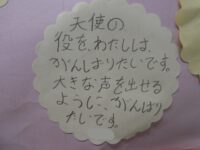 天使の
役を、わたしは、
がんばりたいです。
大きな声を出せる
ように、がんばり
たいです。